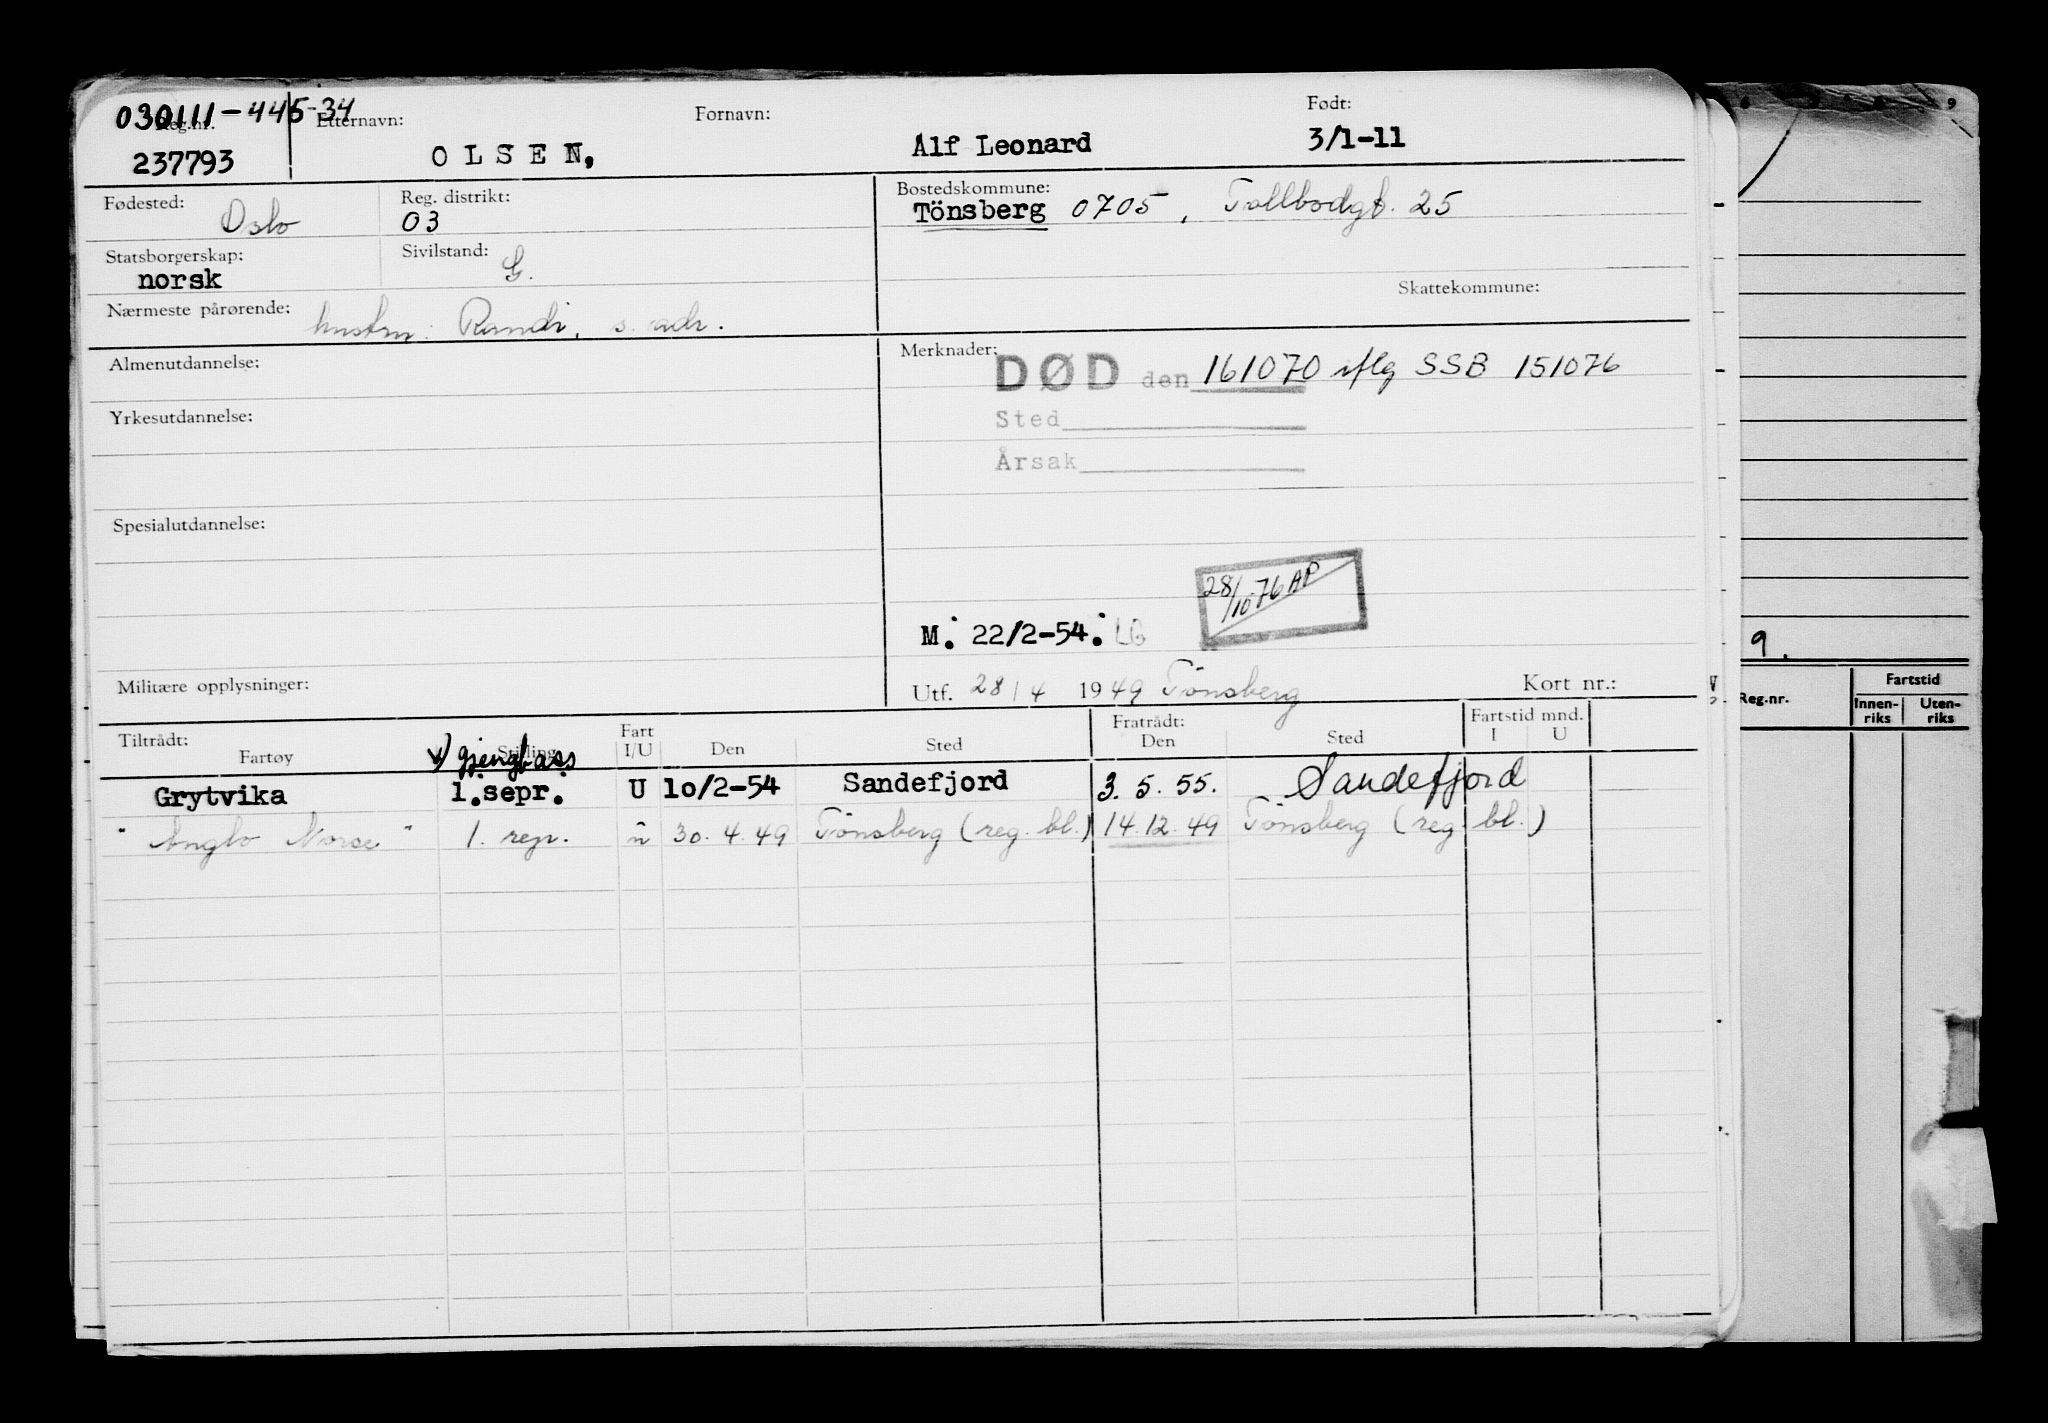 030111-445-34
Reg.nr. Etternavn: Fornavn: Født:
237793 OLSEN, Alf Leonard 3/1-11
Fødested: Oslo Reg. distrikt: 03 Bostedskommune: Tönsberg 0705, Tollbodgt. 25
Statsborgerskap: norsk Sivilstand: G. Skattekommune:
Nærmeste pårørende: hustru: Randi, s. adr.
Almenutdannelse: Merknader: DØD den 161070 iflg SSB 151076
Yrkesutdannelse: Sted
Årsak
Spesialutdannelse:
28/10-76 AP
M: 22/2-54: LG
Militære opplysninger: Utf. 28/4 1949 Tönsberg Kort nr.:
Tiltrådt: Fart Fratrådt: Fartstid mnd.
Fartøy Stilling I/U Den Sted Den Sted I U
v) gjengbass
Grytvika 1.sepr. U 10/2-54 Sandefjord 3.5.55. Sandefjord
"Anglo Norse" 1. repr. u 30.4.49 Tönsberg (reg. bl.) 14.12.49 Tönsberg (reg. bl.)
9.
Reg.nr. Fartstid
Innen-riks Uten-riks